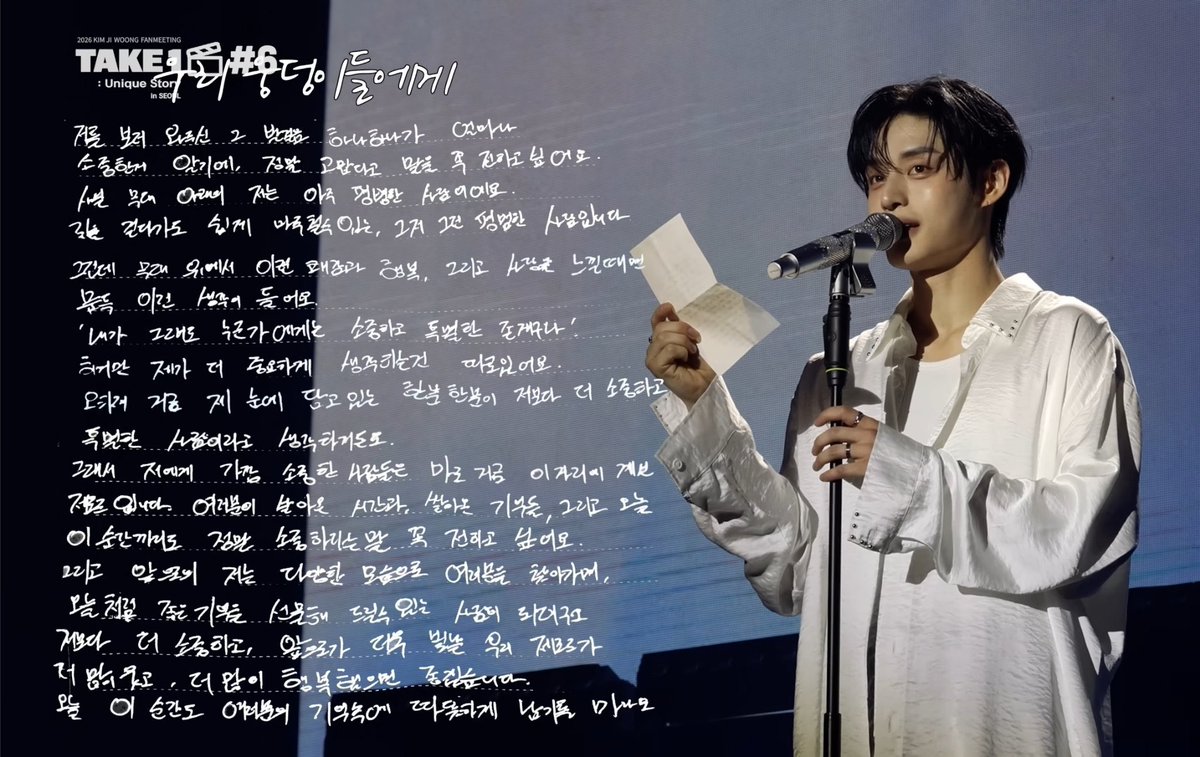 2026 KIM JI WOONG FANMEETING
TAKE 1 #6
: Unique Story
in SEOUL
우리 웅덩이들에게
저를 보러 와주신 그 발걸음 하나하나가 얼마나
소중한지 알기에, 정말 고맙다고 말을 꼭 전하고 싶어요.
사실 무대 아래의 저는 아주 평범한 사람이에요.
길을 걷다가도 쉽게 마주칠수있는, 그저 그런 평범한 사람입니다
그런데 무대 위에서 이런 과 행복, 그리고 사랑을 느낄때면
문득 이런 생각이 들어요.
'내가 그래도 누군가에게는 소중하고 특별한 존재구나'
하지만 제가 더 중요하게 생각하는건 따로있어요.
오히려 지금 제 눈에 담고있는 한분 한분이 저보다 더 소중하고
특별한 사람이라고 생각하거든요.
그래서 저에게 가장 소중한 사람들은 바로 지금 이 자리에 계신
제로즈입니다. 여러분이 살아온 시간과, 쌓아온 기억들, 그리고 오늘
이 순간까지도 정말 소중하다는 말 꼭 전하고 싶어요.
그리고 앞으로의 저는 다양한 모습으로 여러분을 찾아가며,
오늘처럼 좋은 기억을 선물해 드릴수 있는 사람이 되더라도
저보다 더 소중하고, 앞으로가 더욱 빛날 우리 제로즈가
더 많이 웃고, 더 많이 행복했으면 좋겠습니다.
오늘 이 순간도 여러분의 기억속에 따뜻하게 남기를 바라요